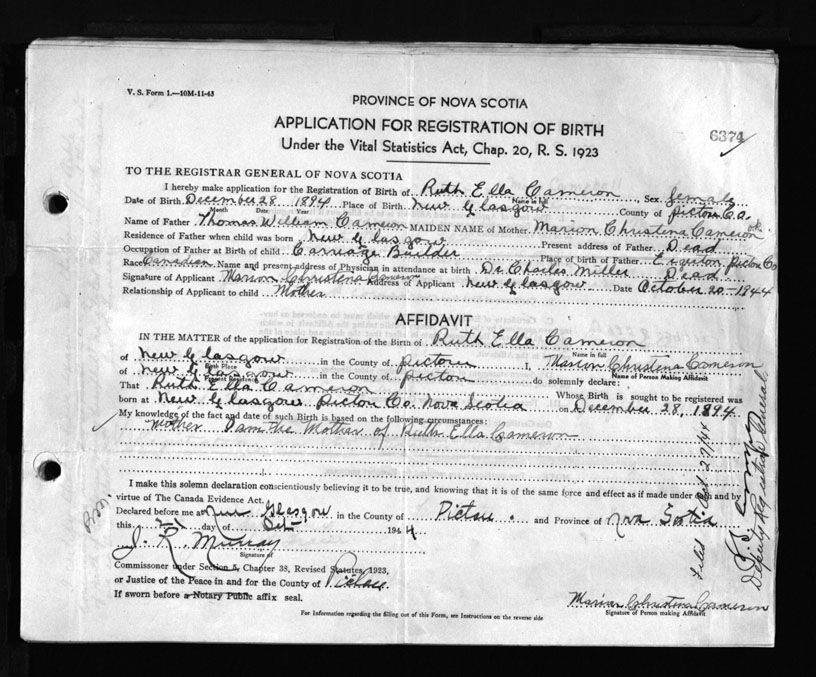 V. S. Form 1.—10M-11-43
PROVINCE OF NOVA SCOTIA
APPLICATION FOR REGISTRATION OF BIRTH
6374
Under the Vital Statistics Act, Chap. 20, R. S. 1923
TO THE REGISTRAR GENERAL OF NOVA SCOTIA
I hereby make application for the Registration of Birth of Ruth Ella Cameron, Sex female
Name in full
Date of Birth December 28 1894 Place of Birth New Glasgow County of Pictou Co.
Month Date Year
Name of Father Thomas William Cameron MAIDEN NAME of Mother Marion Christina Cameron
Residence of Father when child was born New Glasgow Present address of Father Dead
Occupation of Father at Birth of child Carriage Builder Place of birth of Father Egerton Pictou Co
Race Canadian Name and present address of Physician in attendance at birth Dr Charles Miller Dead
Signature of Applicant Marion Christena Cameron Address of Applicant New Glasgow Date October 20 1944
Relationship of Applicant to child Mother
AFFIDAVIT
IN THE MATTER of the application for Registration of the Birth of Ruth Ella Cameron
Name in full
of New Glasgow in the County of Pictou I, Marion Christena Cameron
Birth Place Name of Person Making Affidavit
of New Glasgow in the County of Pictou do solemnly declare:
Present Residence
That Ruth Ella Cameron Whose Birth is sought to be registered was
born at New Glasgow Pictou Co. Nova Scotia on December 28, 1894
My knowledge of the fact and date of such Birth is based on the following circumstances:
Mother I am the Mother of Ruth Ella Cameron
I make this solemn declaration conscientiously believing it to be true, and knowing that it is of the same force and effect as if made under oath and by
virtue of The Canada Evidence Act.
Declared before me at New Glasgow in the County of Pictou and Province of Nova Scotia
this day of Oct 1944
J. R. Murray
Signature of
Commissioner under Section 5, Chapter 38, Revised Statutes, 1923,
or Justice of the Peace in and for the County of Pictou
If sworn before a Notary Public affix seal.
For Information regarding the filling out of this Form, see Instructions on the reverse side
Marion Christena Cameron
Signature of Person making Affidavit
Filed Oct 27/44
Deputy Registrar General